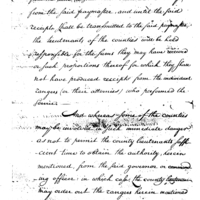 from the said paymaster, and until the said
receipts shall be transmitted to the said paymaster,
the lieutenants of the counties will be held
responsible for the sums they may have received
or such proportions thereof for which they shall
not have produced receipts from the
rangers (or their attornies) who performed the
service.
And whereas some of the counties
may be involved in such immediate danger
as not to permit the county lieutenants suffi-
cient time to obtain the authority, herein
mentioned, from the said governor or command-
ing officer; in which case the county lieutenants
may order out the rangers herein mentioned